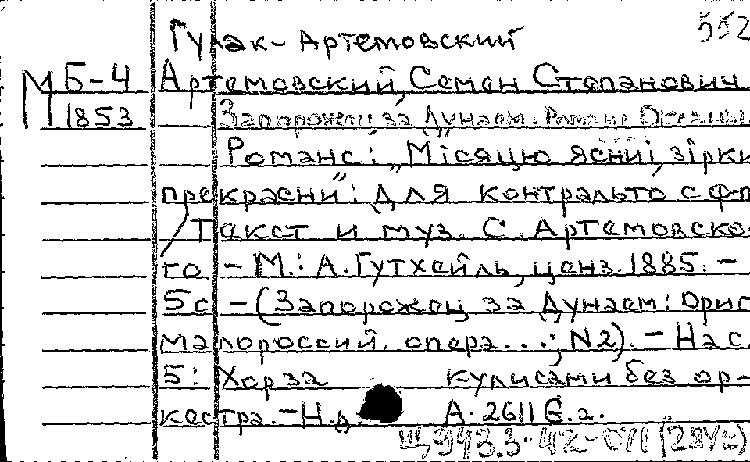 Гулак-Артемовский 552
М Б-4 Артемовский, Семен Степанович
1853 Запорожец за Дунаем. Романс
Романс: „Місяцю ясний, зірки
прекрасни": Для контральто с ф-п
/Текст и муз. С. Артемовско-
го. - М.: А. Гутхейль, ценз. 1885. -
5 с - (Запорожец за Дунаем: Ориг
малороссий. опера...; N2). - На с.
5: Хор за кулисами без ор-
кестра. - Н.д. А. 2611 Г.а.
Щ943.3-42-011